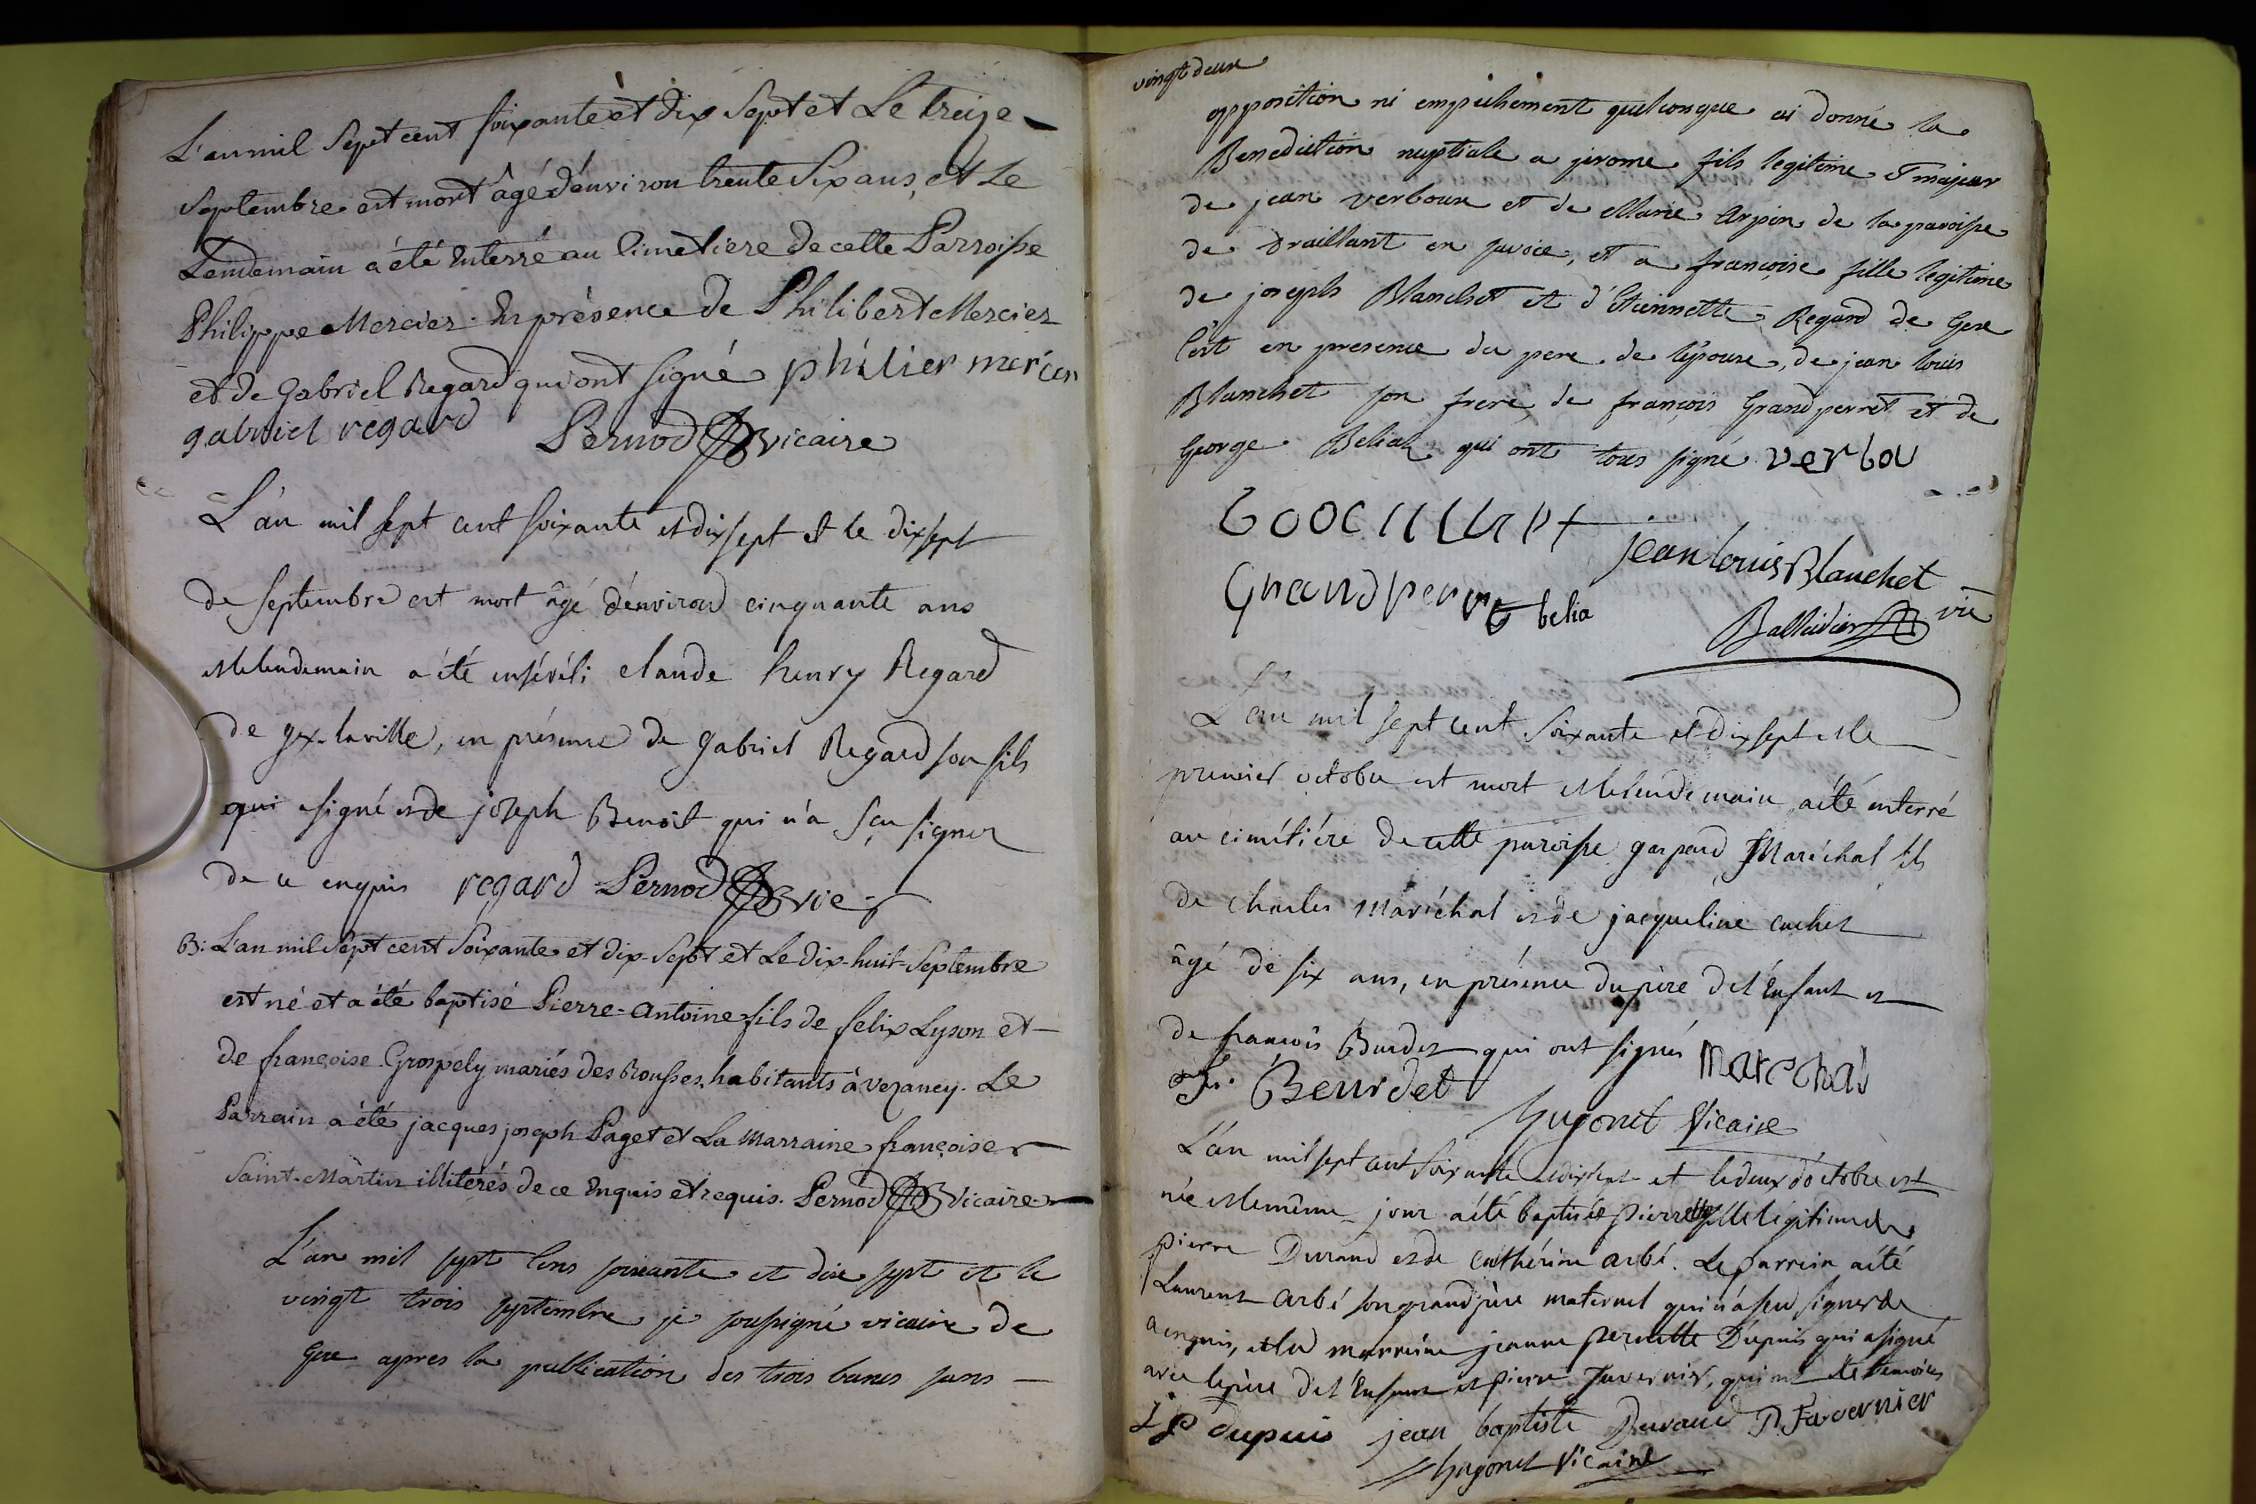 L'an mil Sept cent soixante et dix Sept et Le treize
Septembre est mort âgé d'environ trente Six ans, et Le
Lendemain a été Enterré au Cimetiere de cette Parroisse
Philippe Mercier. En présence de Philibert Mercier
et de Gabriel Regard qui ont signé philier mercier
gabriel regard Pernod vicaire
L'an mil sept cent soixante et dix sept et le dixsept
de septembre est mort âgé d'environ cinquante ans
et le lendemain a été enséveli claude henry Regard
de gex-la ville, en présence de gabriel Regard son fils
qui a signé et de joseph Benoit qui n'a sçu signer
de ce enquis regard Pernod vic
B: L'an mil Sept cent Soixante et dix-Sept et Le dix-huit Septembre
est né et a été baptisé Pierre-Antoine fils de felix Lyson et
de françoise Grospely mariés des Rousses habitants à vezancy. Le
Parrain a été jacques joseph Paget et La Marraine françoise
Saint-Martin illiterés de ce Enquis et requis. Pernod Vicaire
L'an mil sept cens soixante et dix sept et le
vingt trois septembre je soussigné vicaire de
Gex apres la publication des trois bancs sans
vingt deux
opposition ni empechement quelconque ai donné la
Benediction nuptiale a jerome fils legitime et majeur
de jean verboux et de Marie Arpin de la paroisse
de Draillant en savoie, et a francoise fille legitime
de joseph Blanchet et d'Etiennette Regard de Gex
C'est en presence du pere de l'epouse, de jean louis
Blanchet son frere, de françois Grandperret et de
George Beliat qui ont tous signé verbou
jean louis Blanchet
Grandperret G belia
vic
L'an mil sept cent soixante et dix sept et le
premier octobre est mort et le lendemain a été enterré
au cimétiére de cette paroisse gaspard Maréchal fils
de charles Maréchal et de jacqueline cachet
âgé de six ans, en présence du père de l'Enfant et
de francois Burdet qui ont signés Marechal
fr. Beurdet
hugonet Vicaire
L'an mil sept cent soixante et dixsept et le deux d'octobre est
née et le même jour a été baptisée pierrette fille légitime de
pierre Durand et de cathérine arbé. Le parrein a été
Laurent arbé son grand père maternel qui n'a seu signer de
ce enquis, et la marreine jeanne pernette Dupuis qui a signé
avec le père de l'Enfant et pierre Tavernier, qui ont été témoins
J P dupuis jean baptiste Durand P. Tavernier
hugonet Vicaire